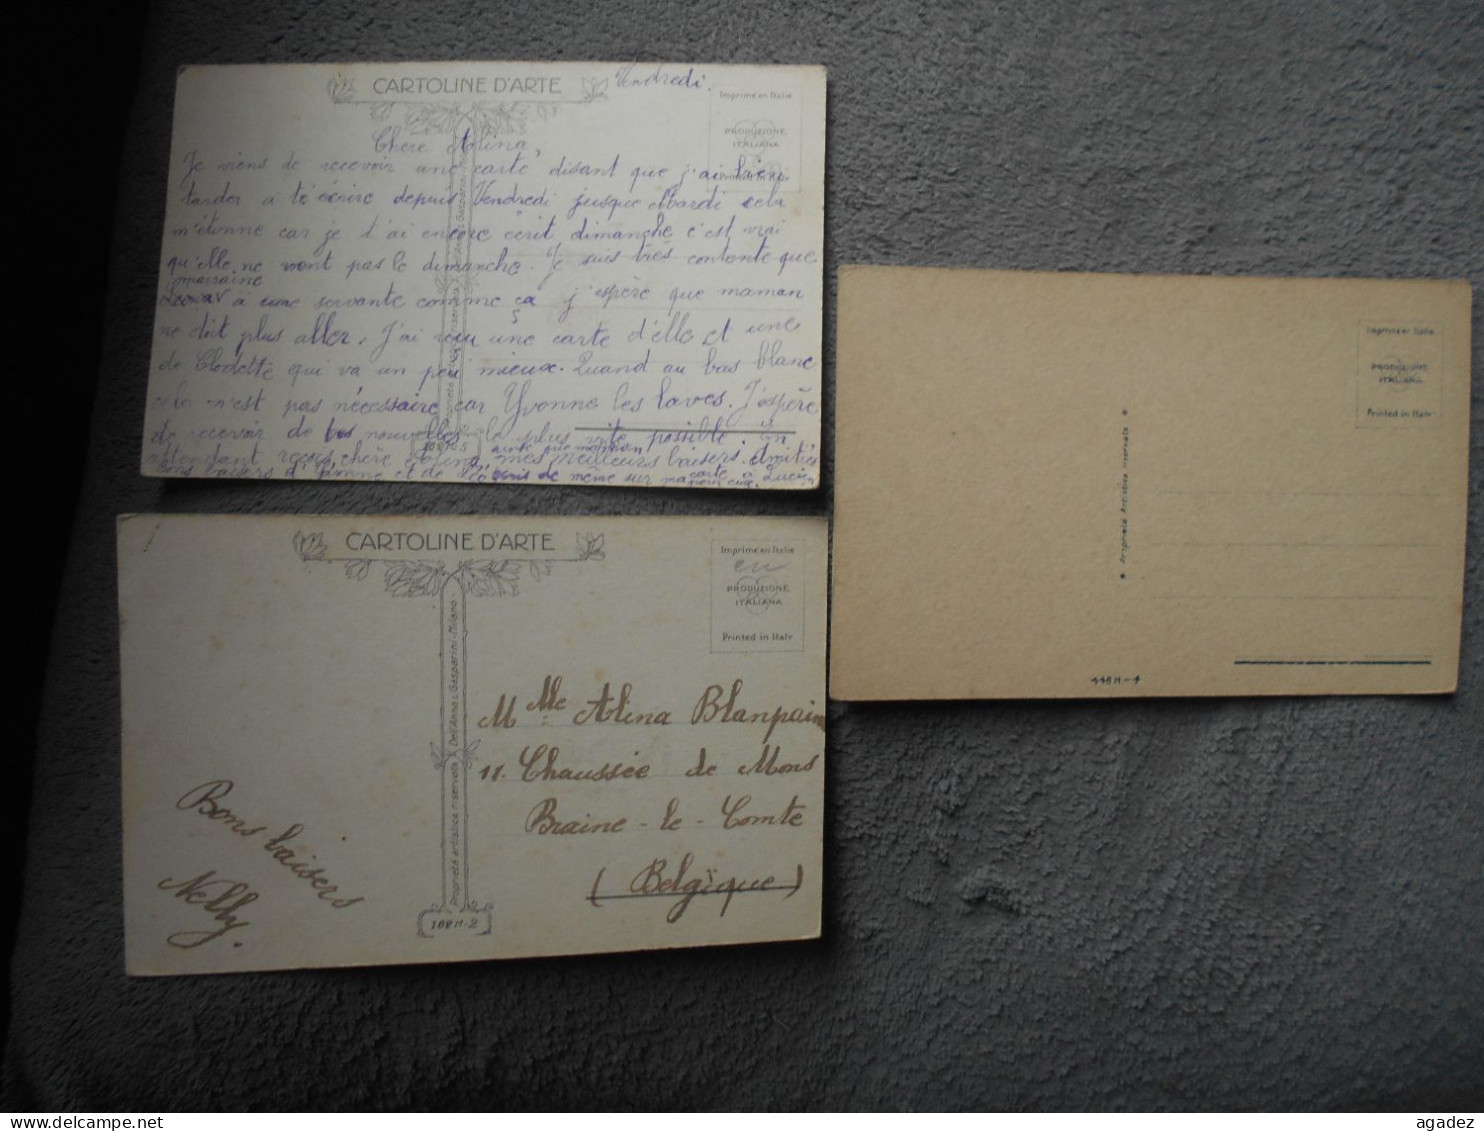 CARTOLINE D'ARTE
Vendredi.
Imprimé en Italie
PRODUZIONE
ITALIANA
Printed in Italy
Chère Alina,
Je viens de recevoir une carte disant que j'ai bien
tarder a t'écrire depuis Vendredi jusque Mardi cela
m'étonne car je t'ai encore écrit dimanche c'est vrai
qu'elle ne vont pas le dimanche. Je suis très contente que
marraine
à une servante comme ça j'espère que maman
ne doit plus aller. J'ai reçu une carte d'elle et une
de Clodette qui va un peu mieux. Quand au bas blanc
cela n'est pas nécessaire car Yvonne les laves. J'espère
de recevoir de tes nouvelles le plus vite possible. En
ainsi que maman
attendant reçois chère Alina, mes meilleurs baisers. Amitiés
Bons baisers d'Yvonne et de même sur ma carte à Lucien
pour eux.
CARTOLINE D'ARTE
Imprimé en Italie
en
PRODUZIONE
ITALIANA
Printed in Italy
Proprietà artistica riservata Dell'Anna & Gasparini-Milano
168M-2
Bons baisers
Nelly.
Mlle Alina Blanpain
11. Chaussée de Mons
Braine-le-Comte
(Belgique)
Imprimé en Italie
PRODUZIONE
ITALIANA
Printed in Italy
Proprietà Artistica riservata
445M-4
agadez
delcampe.net